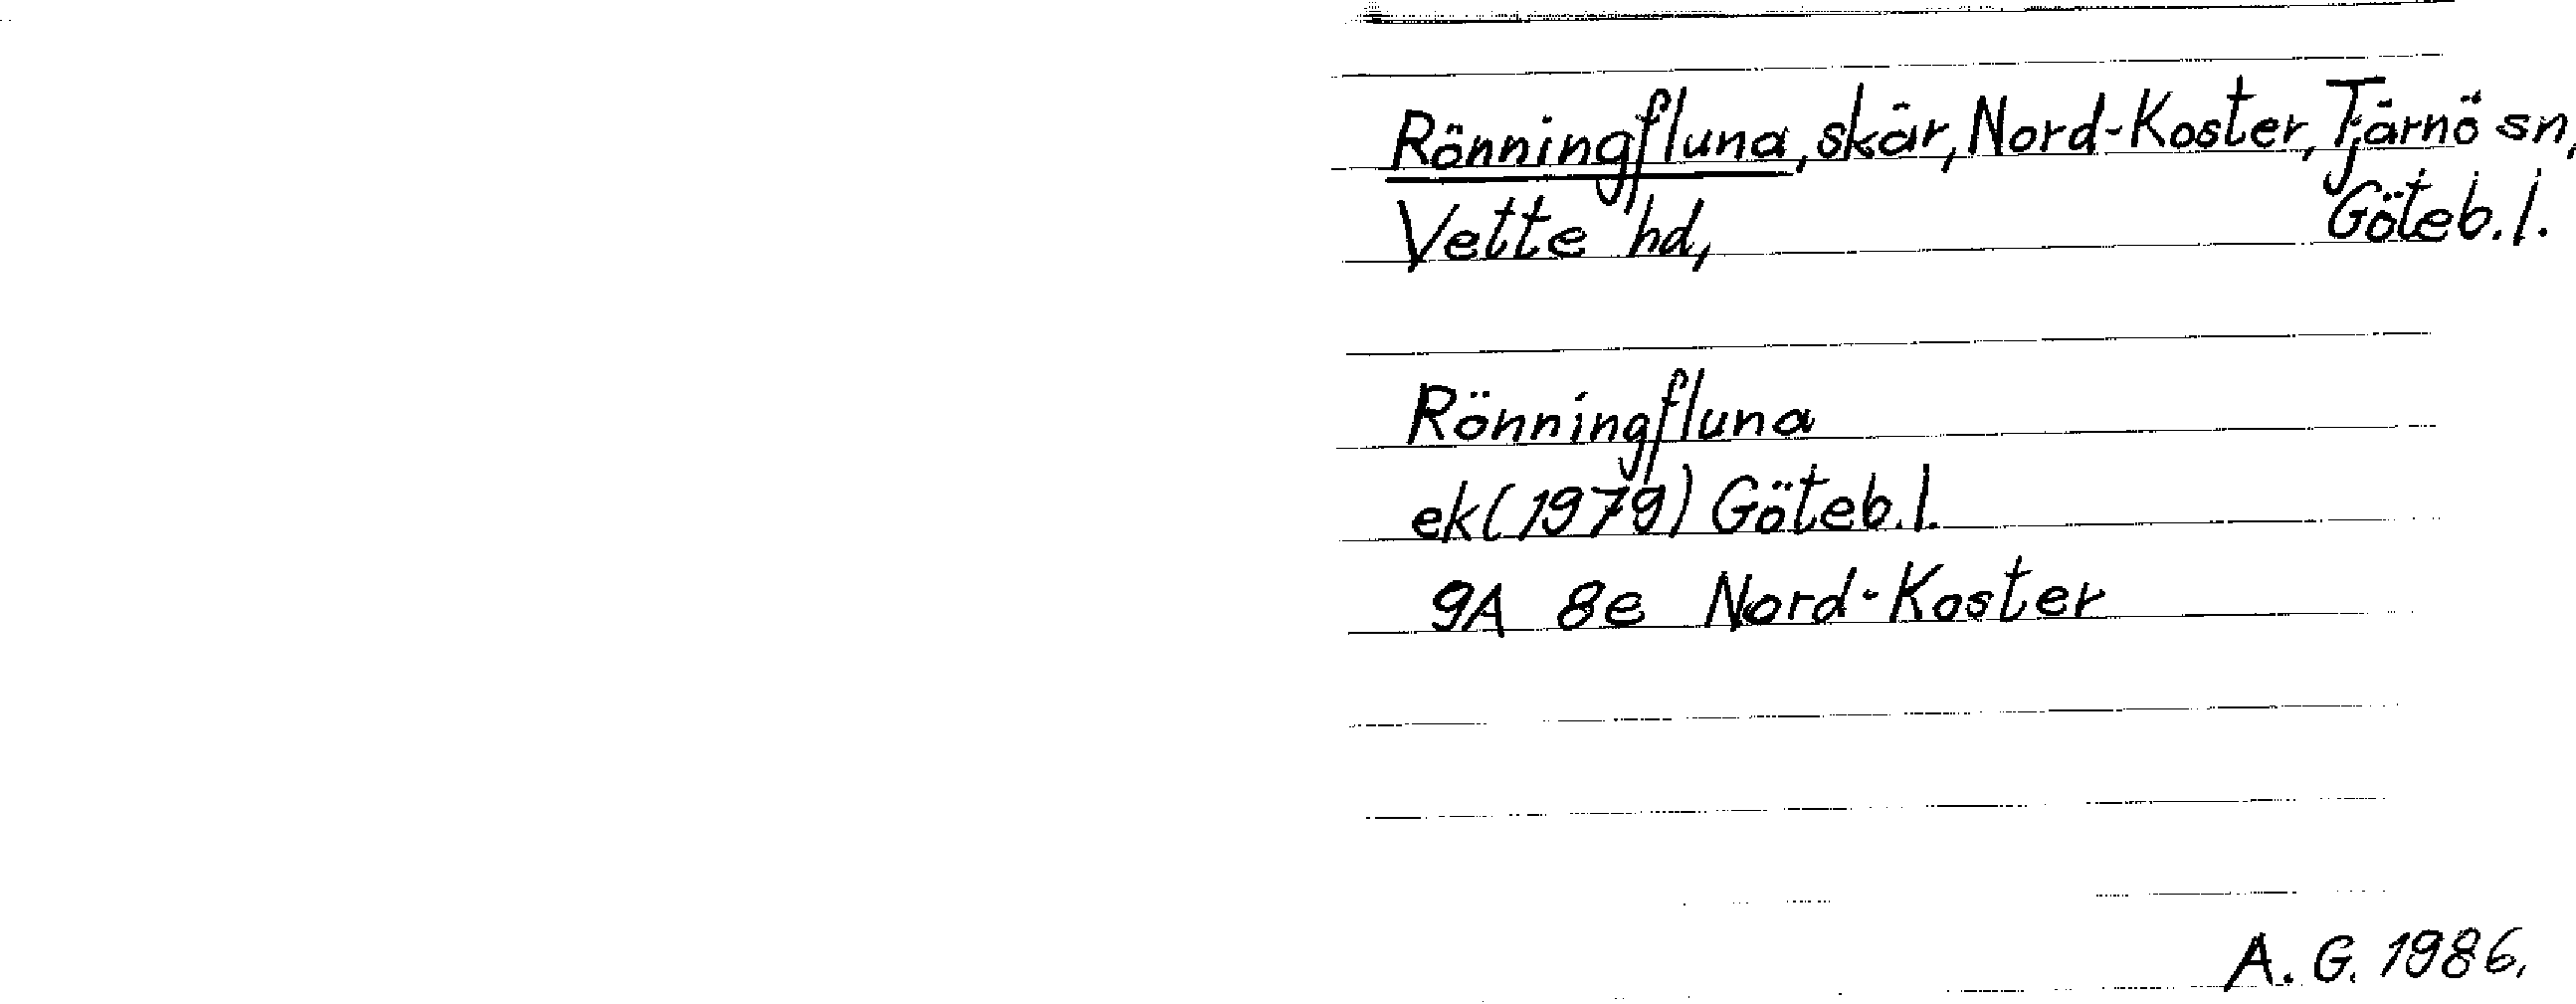 Rönningfluna, skär, Nord-Koster, Tjärnö sn,
Vette hd, Göteb. l.
Rönningfluna
ek (1979) Göteb. l.
9A 8e Nord-Koster
A. G. 1986.